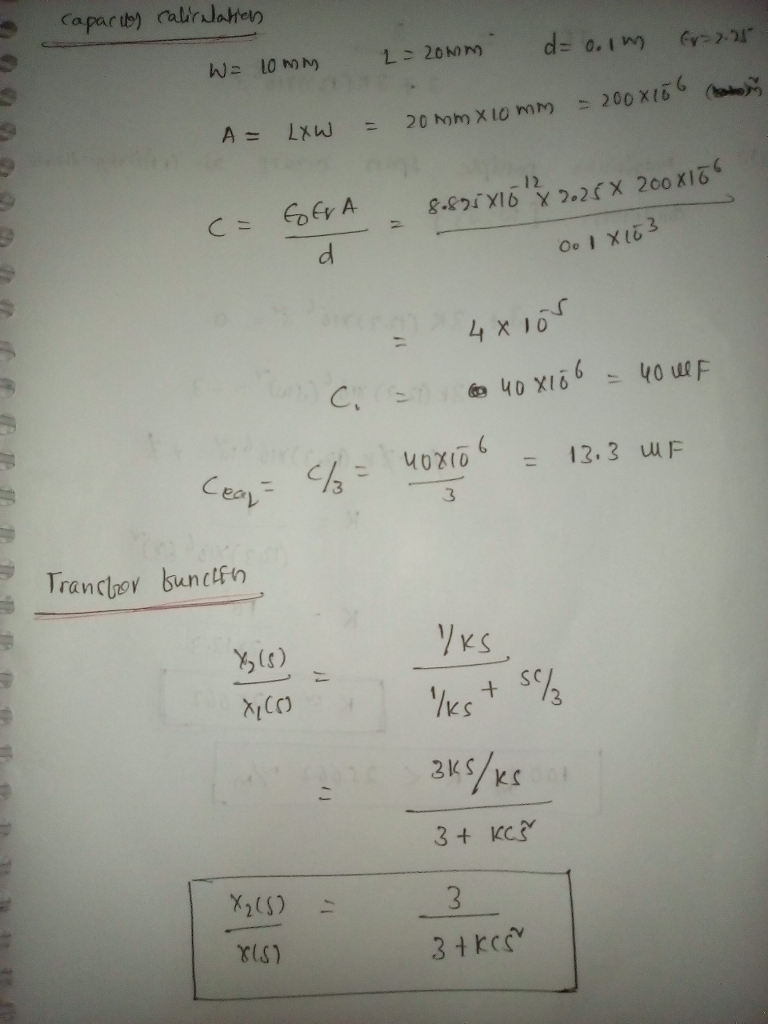 Capacity calculation
W = 10 mm L = 20 mm d = 0.1 m εr = 2.25
A = L×W = 20 mm × 10 mm = 200 × 10^-6 m²
C = ε0 εr A / d = 8.825 × 10^-12 × 2.25 × 200 × 10^-6 / 0.1 × 10^-3
= 4 × 10^-5
C. = 40 × 10^-6 = 40 uF
Ceq = C/3 = 40×10^-6 / 3 = 13.3 uF
Transfer function
X2(s) / X1(s) = 1/KS / 1/KS + SC/3
= 3KS/KS / 3 + KCS²
X2(S) / X(S) = 3 / 3 + KCS²